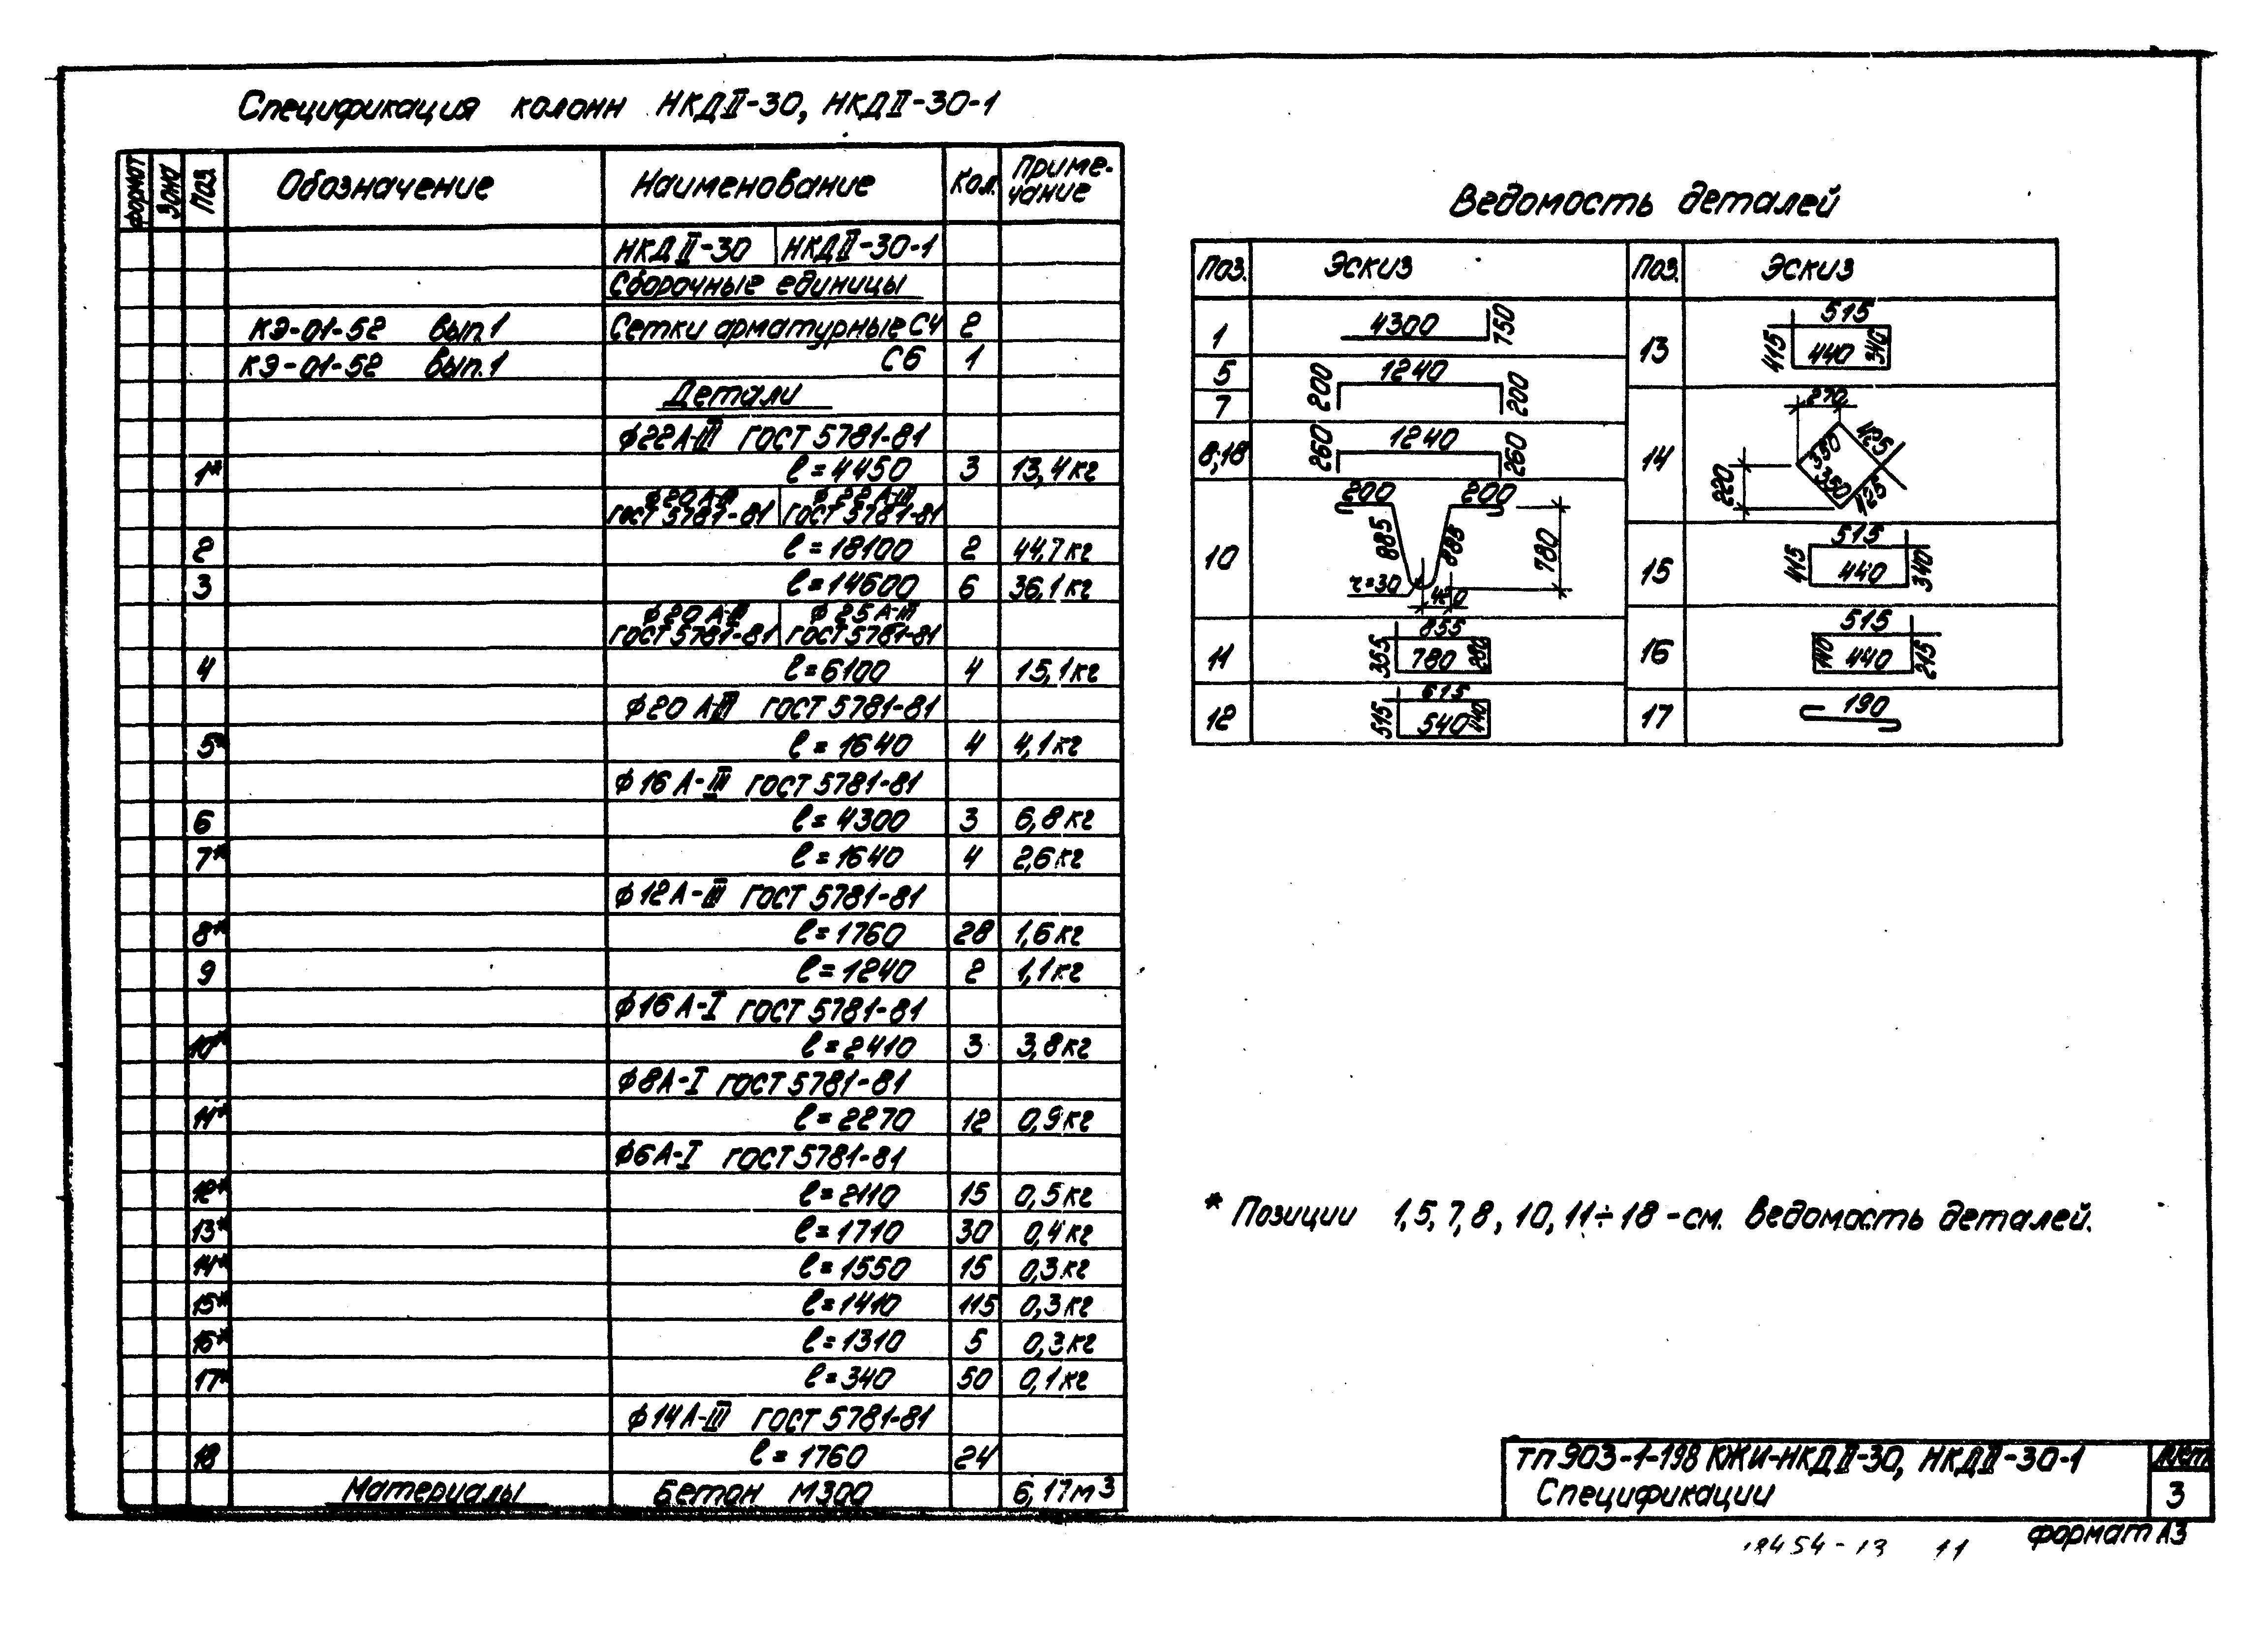 Спецификация колонн НКДII-30, НКДII-30-1
Формат Зона Поз. Обозначение Наименование Кол. Приме-
чание
НКДII-30 НКДII-30-1
Сборочные единицы
КЭ-01-52 Вып.1 Сетки арматурные С4 2
КЭ-01-52 Вып.1 С6 1
Детали
ф22А-III ГОСТ 5781-81
1* ℓ=4450 3 13,4кг
ф20А-III ф22А-III
ГОСТ 5781-81 ГОСТ 5781-81
2 ℓ=18100 2 44,7кг
3 ℓ=14600 6 36,1кг
ф20А-III ф25А-III
ГОСТ 5781-81 ГОСТ 5781-81
4 ℓ=6100 4 15,1кг
ф20 А-III ГОСТ 5781-81
5* ℓ=1640 4 4,1кг
ф16 А-III ГОСТ 5781-81
6 ℓ=4300 3 6,8кг
7* ℓ=1640 4 2,6кг
ф12А-III ГОСТ 5781-81
8* ℓ=1760 28 1,6кг
9 ℓ=1240 2 1,1кг
ф16А-I ГОСТ 5781-81
10* ℓ=2410 3 3,8кг
ф8А-I ГОСТ 5781-81
11* ℓ=2270 12 0,9кг
ф6А-I ГОСТ 5781-81
12* ℓ=2110 15 0,5кг
13* ℓ=1710 30 0,4кг
14* ℓ=1550 15 0,3кг
15* ℓ=1410 115 0,3кг
16* ℓ=1310 5 0,3кг
17* ℓ=340 50 0,1кг
ф14А-III ГОСТ 5781-81
18 ℓ=1760 24
Материалы Бетон М300 6,17м3
Ведомость деталей
Поз. Эскиз Поз. Эскиз
1 4300 750
5
7 1240 200 200
8;18 1240 260 260
10 200 200 885 885 780 r=30
11 855 355 780 280
12 615 515 540 440
13 515 415 440 340
14 270 220 350 350 425 125
15 515 415 440 340
16 515 140 440 215
17 190
* Позиции 1,5,7,8,10,11÷18 -см. ведомость деталей.
ТП 903-1-198 КЖИ-НКДII-30, НКДII-30-1
Спецификации
Лист
3
Формат А3
18454-13 11